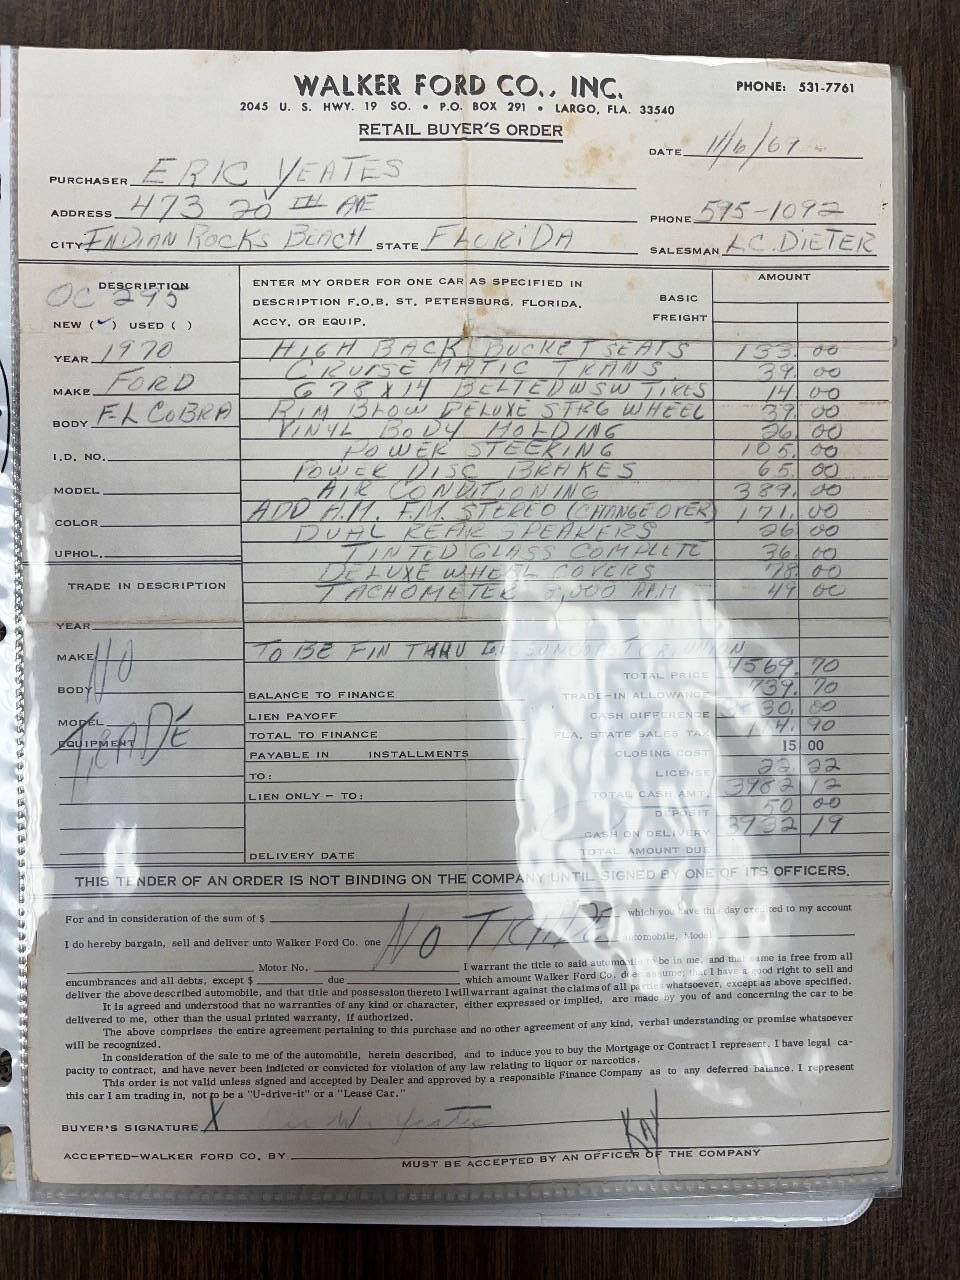 WALKER FORD CO., INC.
PHONE: 531-7761
2045 U. S. HWY. 19 SO. • P.O. BOX 291 • LARGO, FLA. 33540
RETAIL BUYER'S ORDER
DATE 11/6/69
PURCHASER ERIC YEATES
ADDRESS 473 20TH AVE
PHONE 595-1092
CITY INDIAN ROCKS BEACH STATE FLORIDA
SALESMAN L.C. DIETER
DESCRIPTION
OC 295
NEW (✓) USED ( )
ENTER MY ORDER FOR ONE CAR AS SPECIFIED IN
DESCRIPTION F.O.B. ST. PETERSBURG, FLORIDA.
ACCY. OR EQUIP.
BASIC
FREIGHT
AMOUNT
YEAR 1970
MAKE FORD
BODY F-L COBRA
I.D. NO.
MODEL
COLOR
UPHOL.
HIGH BACK BUCKET SEATS 133. 00
CRUISE MATIC TRANS. 39. 00
G78X14 BELTED WSW TIRES 14. 00
RIM BLOW DELUXE STRG WHEEL 39. 00
VINYL BODY MOLDING 26. 00
POWER STEERING 105. 00
POWER DISC BRAKES 65. 00
AIR CONDITIONING 389. 00
ADD A.M. F.M. STEREO (CHANGEOVER) 171. 00
DUAL REAR SPEAKERS 26 00
TINTED GLASS COMPLETE 36. 00
DELUXE WHEEL COVERS 78. 00
TACHOMETER 8,000 RPM 49 00
TRADE IN DESCRIPTION
YEAR
MAKE
BODY
MODEL
EQUIPMENT
NO
TRADE
TO BE FIN THRU UNION
TOTAL PRICE 4569. 70
BALANCE TO FINANCE TRADE-IN ALLOWANCE 739. 70
LIEN PAYOFF CASH DIFFERENCE 30. 00
TOTAL TO FINANCE FLA. STATE SALES TAX 4. 90
PAYABLE IN INSTALLMENTS CLOSING COST 15 00
TO: LICENSE 22. 22
LIEN ONLY – TO: TOTAL CASH AMT. 3982 12
DEPOSIT 50 00
CASH ON DELIVERY 3932 19
DELIVERY DATE TOTAL AMOUNT DUE
THIS TENDER OF AN ORDER IS NOT BINDING ON THE COMPANY UNTIL SIGNED BY ONE OF ITS OFFICERS.
For and in consideration of the sum of $ which you have this day credited to my account
I do hereby bargain, sell and deliver unto Walker Ford Co. one NO TRADE automobile, Model
Motor No. I warrant the title to said automobile to be in me, and that same is free from all
encumbrances and all debts, except $ due which amount Walker Ford Co. does assume; that I have a good right to sell and
deliver the above described automobile, and that title and possession thereto I will warrant against the claims of all parties whatsoever, except as above specified.
It is agreed and understood that no warranties of any kind or character, either expressed or implied, are made by you of and concerning the car to be
delivered to me, other than the usual printed warranty, if authorized.
The above comprises the entire agreement pertaining to this purchase and no other agreement of any kind, verbal understanding or promise whatsoever
will be recognized.
In consideration of the sale to me of the automobile, herein described, and to induce you to buy the Mortgage or Contract I represent. I have legal ca-
pacity to contract, and have never been indicted or convicted for violation of any law relating to liquor or narcotics.
This order is not valid unless signed and accepted by Dealer and approved by a responsible Finance Company as to any deferred balance. I represent
this car I am trading in, not to be a "U-drive-it" or a "Lease Car."
BUYER'S SIGNATURE X W. Yeates
ACCEPTED–WALKER FORD CO. BY
MUST BE ACCEPTED BY AN OFFICER OF THE COMPANY